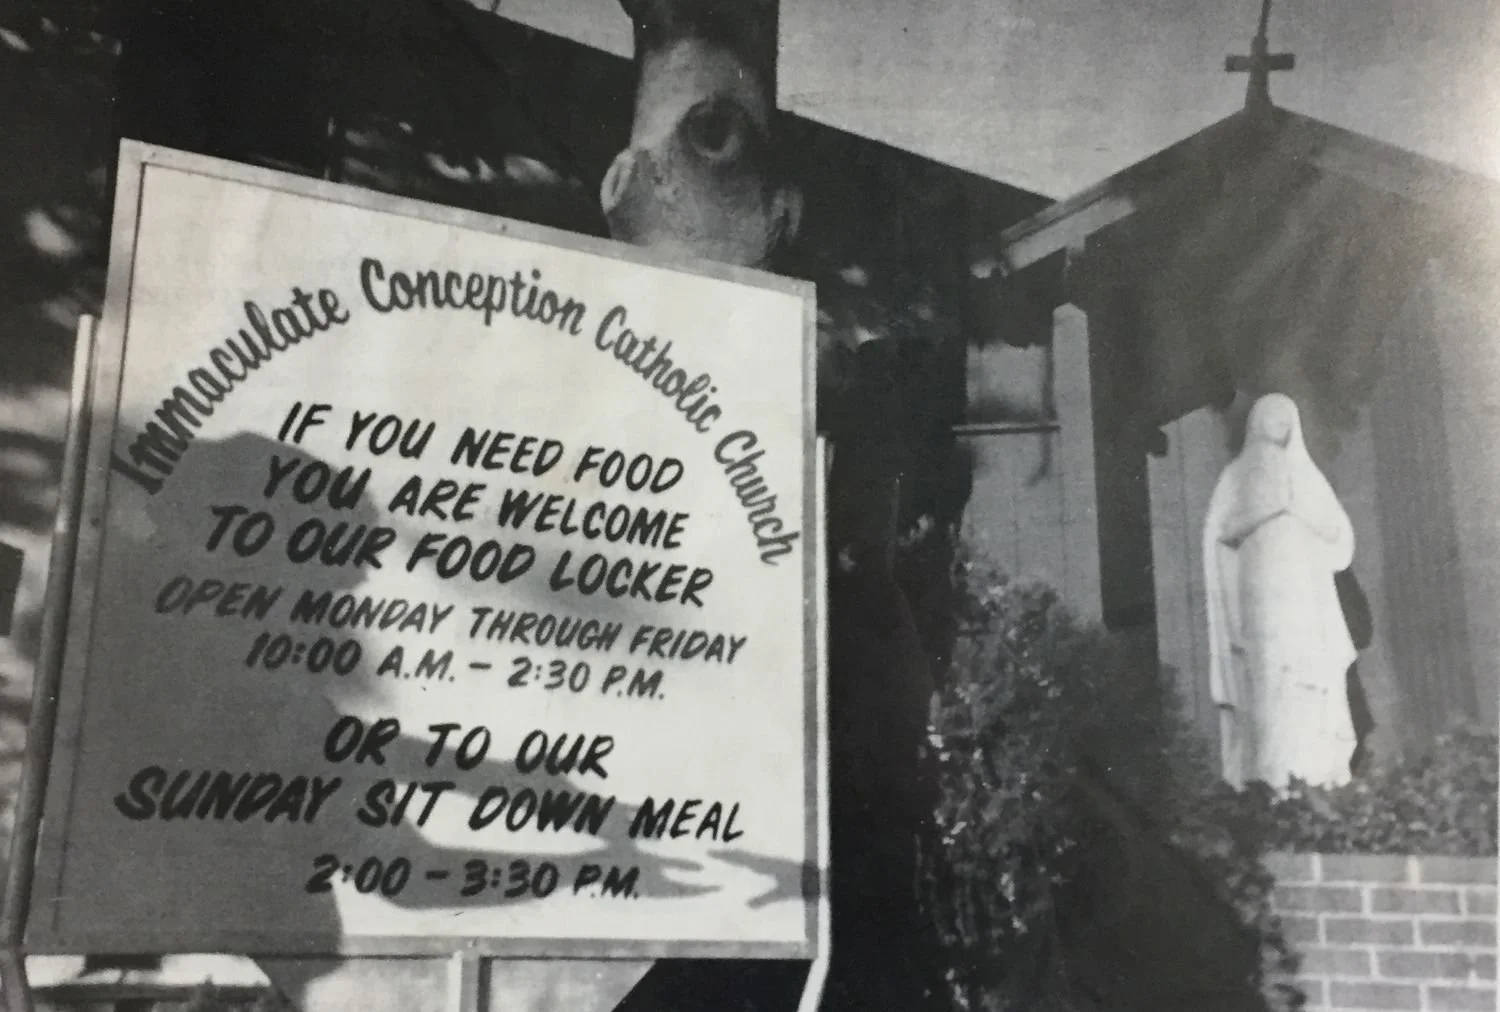 Immaculate Conception Catholic Church
IF YOU NEED FOOD
YOU ARE WELCOME
TO OUR FOOD LOCKER
OPEN MONDAY THROUGH FRIDAY
10:00 A.M. - 2:30 P.M.
OR TO OUR
SUNDAY SIT DOWN MEAL
2:00 - 3:30 P.M.